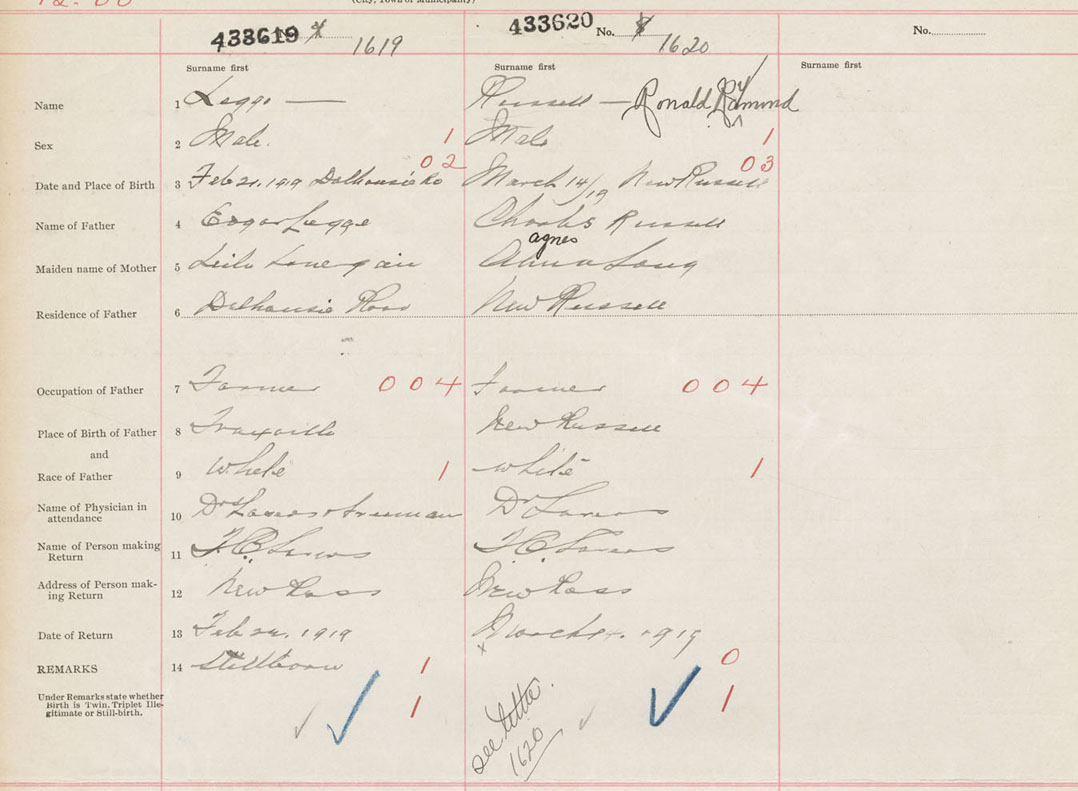 12.00 (City, Town or Municipality)
433619 1619 433620 No. 1620 No.
Surname first Surname first Surname first
Name 1 Legge — Russell — Ronald Raymond
Sex 2 Male. 1 Male 1
02 03
Date and Place of Birth 3 Feb 21, 1919 Dalhousie Rd March 14/19 New Russell
Name of Father 4 Edgar Legge Charles Russell
agnes
Maiden name of Mother 5 Leila Lonegan Alma Long
Residence of Father 6 Dalhousie Road New Russell
Occupation of Father 7 Farmer 004 Farmer 004
Place of Birth of Father 8 New Russell
and
Race of Father 9 White 1 White 1
Name of Physician in
attendance 10 Dr & Freeman Dr
Name of Person making
Return 11
Address of Person mak-
ing Return 12 New Ross New Ross
Date of Return 13 Feb 1919 March 1919
REMARKS 14 Stillborn 1 0
Under Remarks state whether
Birth is Twin, Triplet Ille-
gitimate or Still-birth. 1 1
see letter
1620